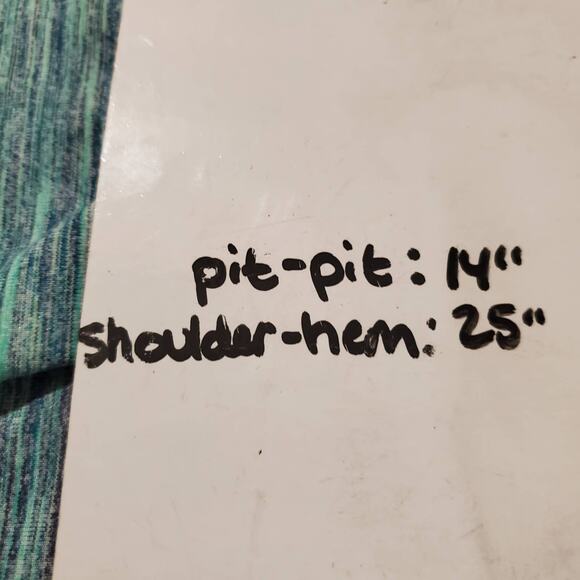 pit-pit: 14"
shoulder-hem: 25"